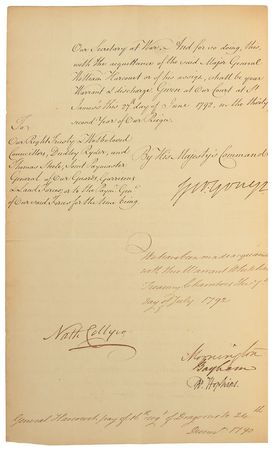 Our Secretary at War. And for so doing, this,
with the acquittance of the said Major General
William Harcourt or of his assigns, shall be your
Warrant & discharge. Given at Our Court at St
James's this 27th day of June 1792, in the thirty
second Year of Our Reign.
To
Our Right Trusty & Welbeloved
Councillors, Dudley Ryder, and
Thomas Steele, Joint Paymaster
General of Our Guards, Garrisons
& Land Forces, or to the Paymr Genl
of Our said Forces for the time being
By His Majesty's Command
Geo Yonge
We have been made acquainted
with this Warrant Whitehall
Treasury Chambers the
day of July 1792
Nath Collyer
Mornington
Bayham
R. Hopkins
General Harcourt, pay of 16th regt of Dragoons to 24th
Decemr 1790